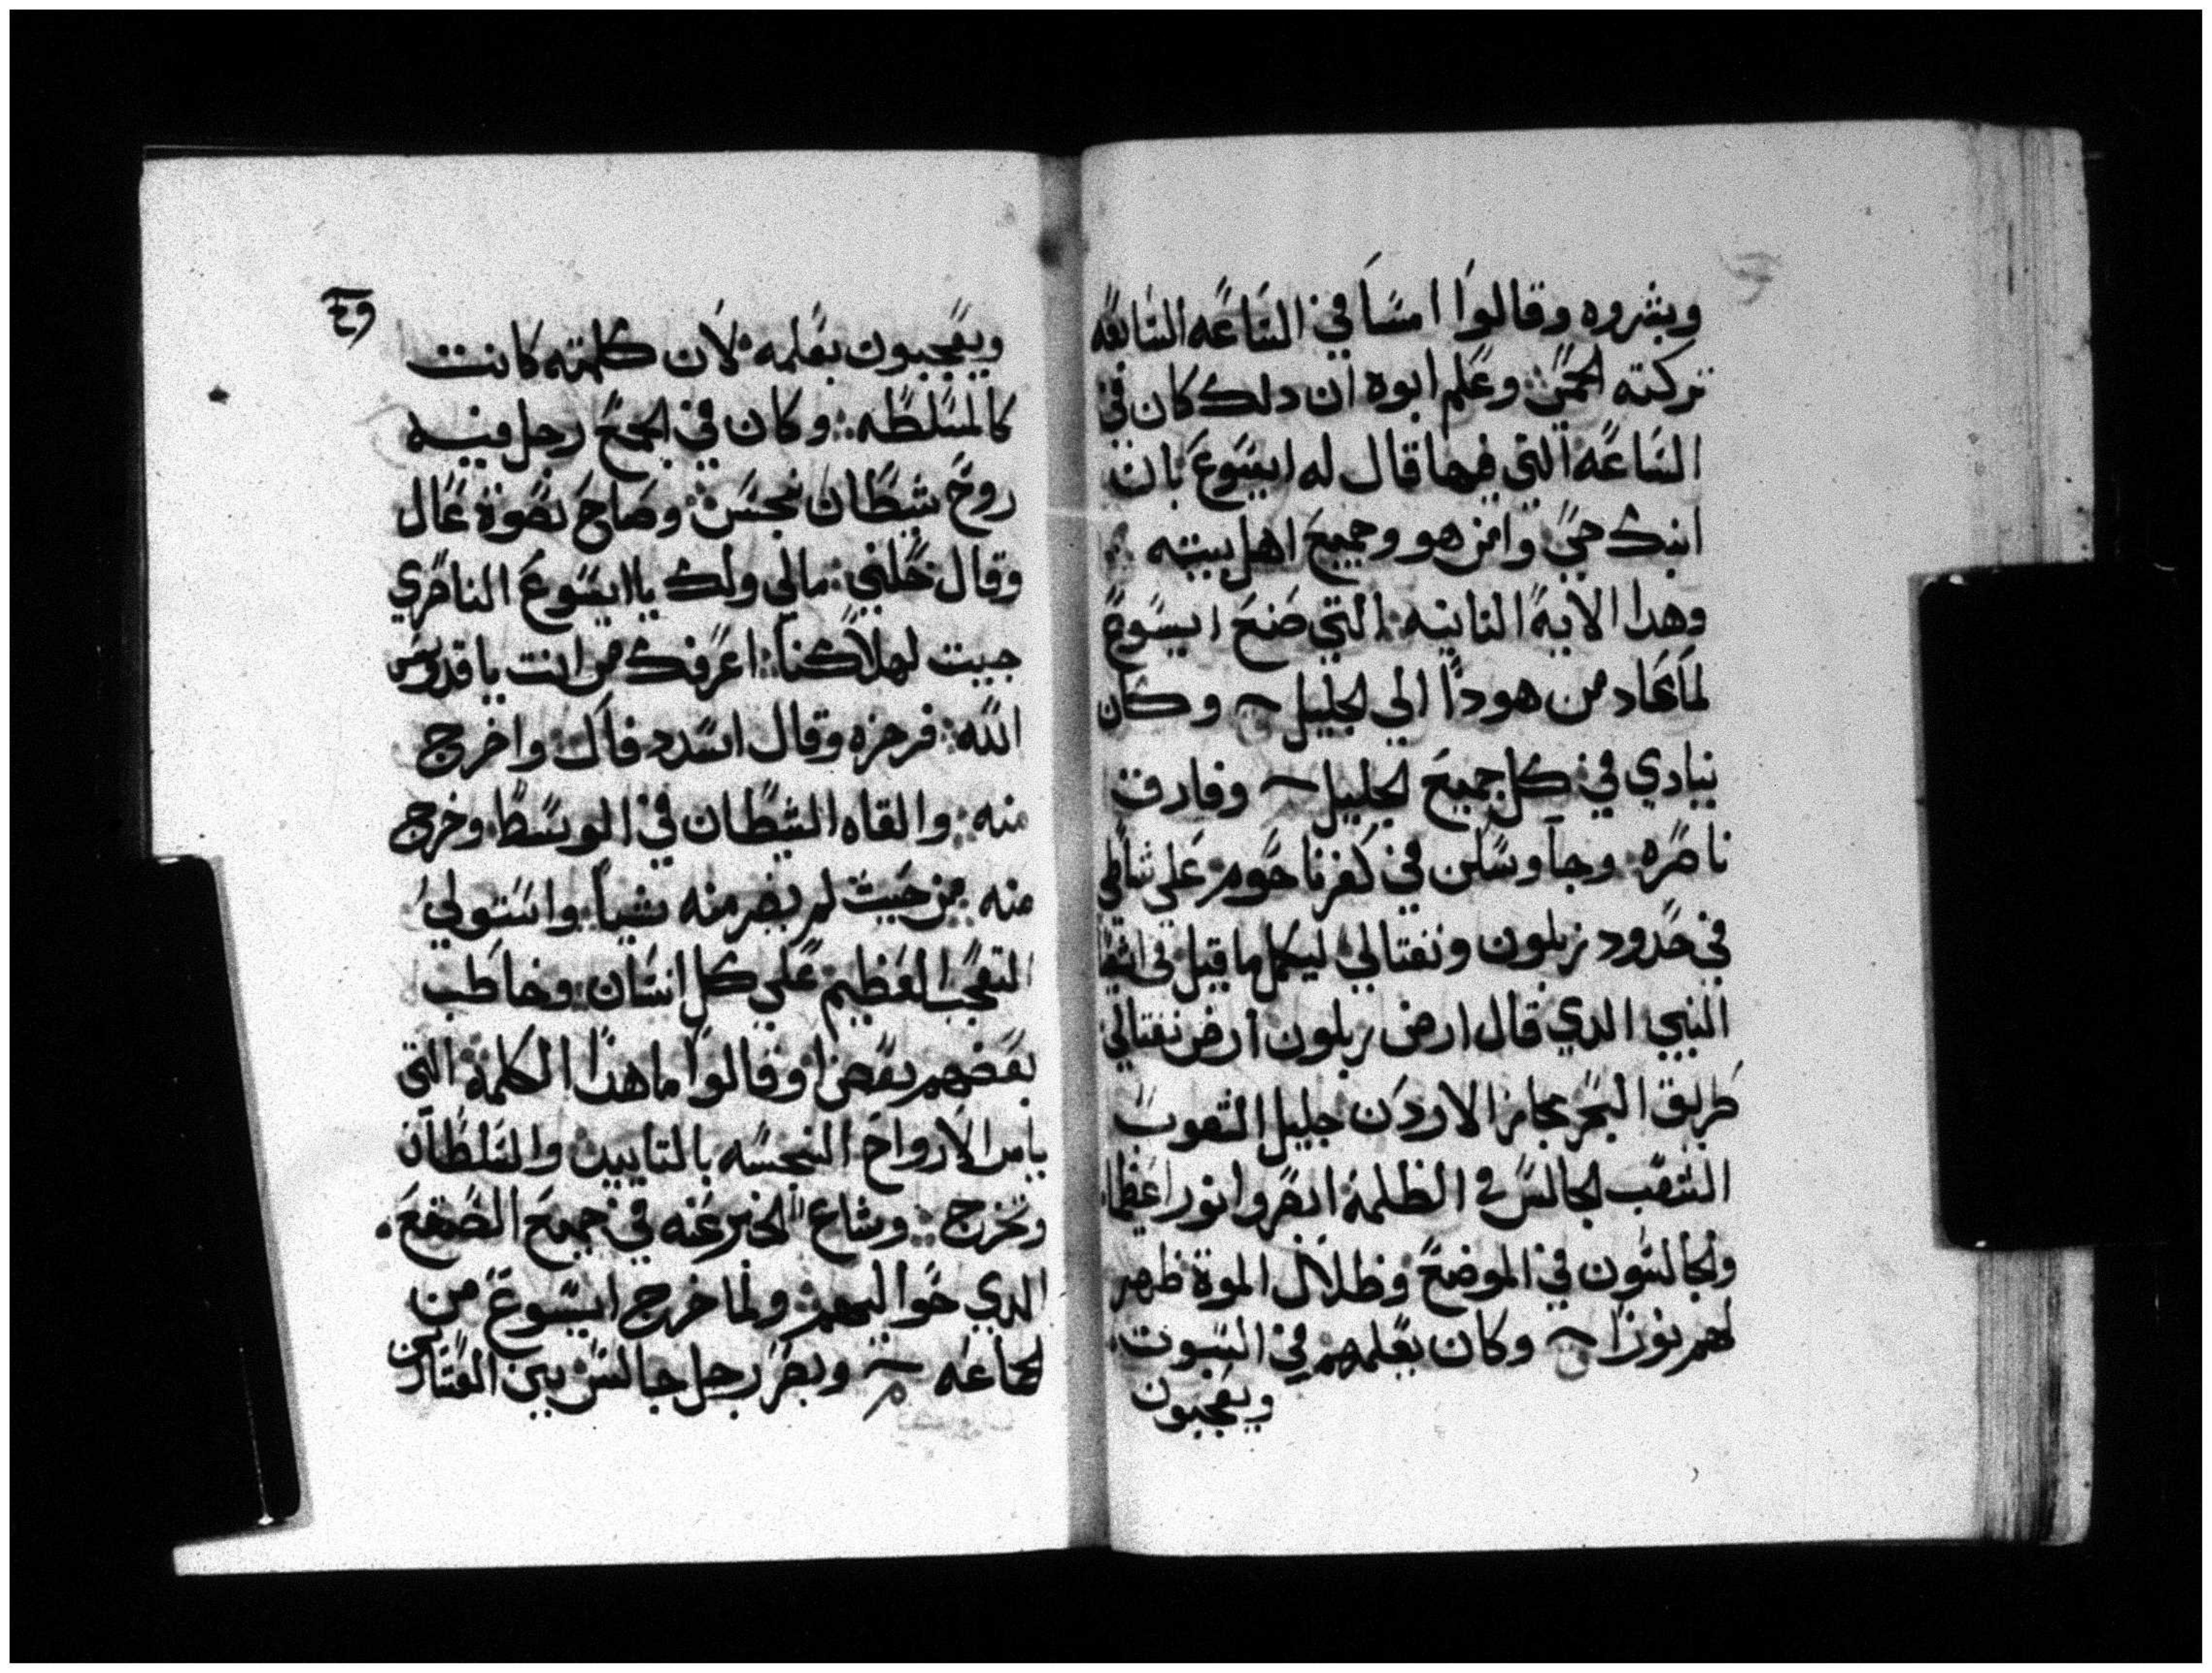 وبشروه وقالوا امسا في الساعه السابعه
تركته الحمى وعلم ابوه ان دلك كان في
الساعه التي فيها قال له ايسوع بان
ابنك حي وامن هو وجميع اهل بيته
وهدا الايه الثانيه التي صنع ايسوع
لما عاد من هودا الي الجليل وكان
ينادي في كل جميع الجليل وفارق
ناصره وجا وسكن في كفرناحوم على شاطي
في حدود زبلون ونفتالي ليكمل ما قيل في
النبي الدي قال ارض زبلون ارض نفتالي
طريق البحر مجاز الاردن جليل الشعوب
الشعب الجالس في الظلمة ابصروا نورا عظما
والجالسون في الموضع وظلال الموة ظهر
لهم نورا وكان يعلمهم في السبوت
ويعجبون
ويعجبون بعلمه لان كلمته كانت
كالمسلطه وكان في الجمع رجل فيه
روح شيطان نجس وصاح بصوة عال
وقال خليني مالي ولك يا ايسوع الناصري
جيت لهلاكنا اعرفك من انت يا قدوس
الله فرجزه وقال اسدد فاك واخرج
منه والقاه الشيطان في الوسط وخرج
منه من حيث لم يضر منه شيا واستولي
التعجب العظيم على كل انسان وخاطب
بعضهم بعضا وقالوا ما هدا الكلمة التي
يامر الارواح النجسه بالتاييد والسلطان
وتخرج وشاع الخبر عنه في جميع الصقع
الدي حواليهم ولما خرج ايسوع من
الجماعه وبصر رجل جالس بين العشارين